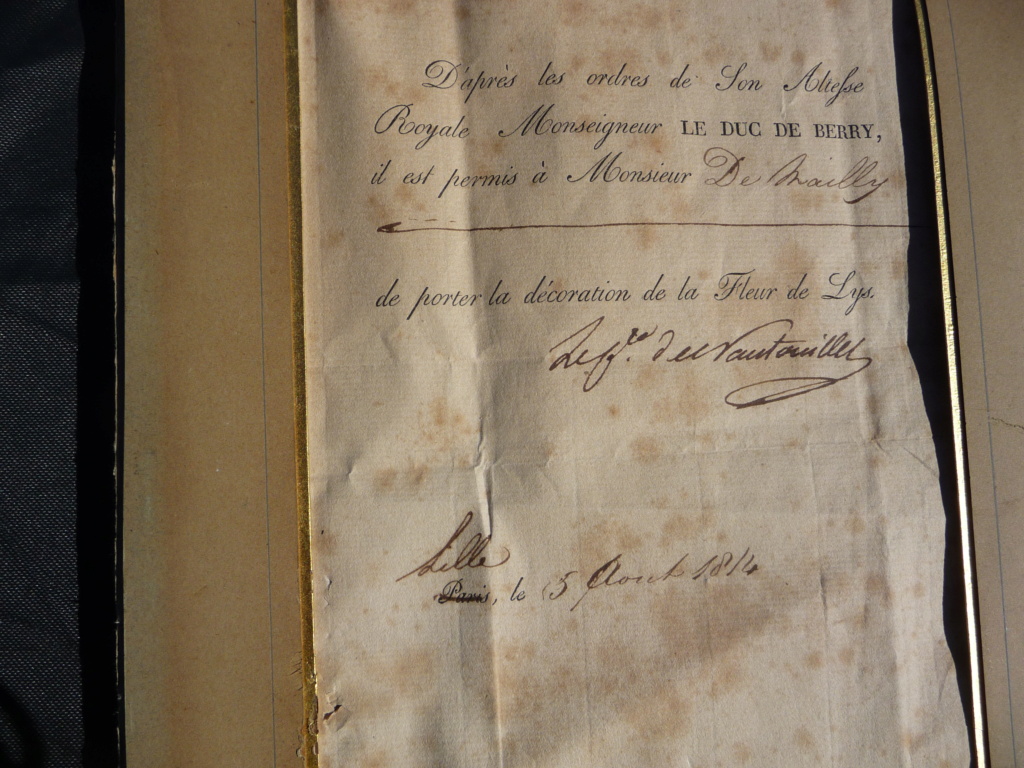 D'après les ordres de Son Altesse
Royale Monseigneur LE DUC DE BERRY,
il est permis à Monsieur De Mailly
de porter la décoration de la Fleur de Lys.
de Nantouillet
Lille
Paris, le 5 Aout 1814